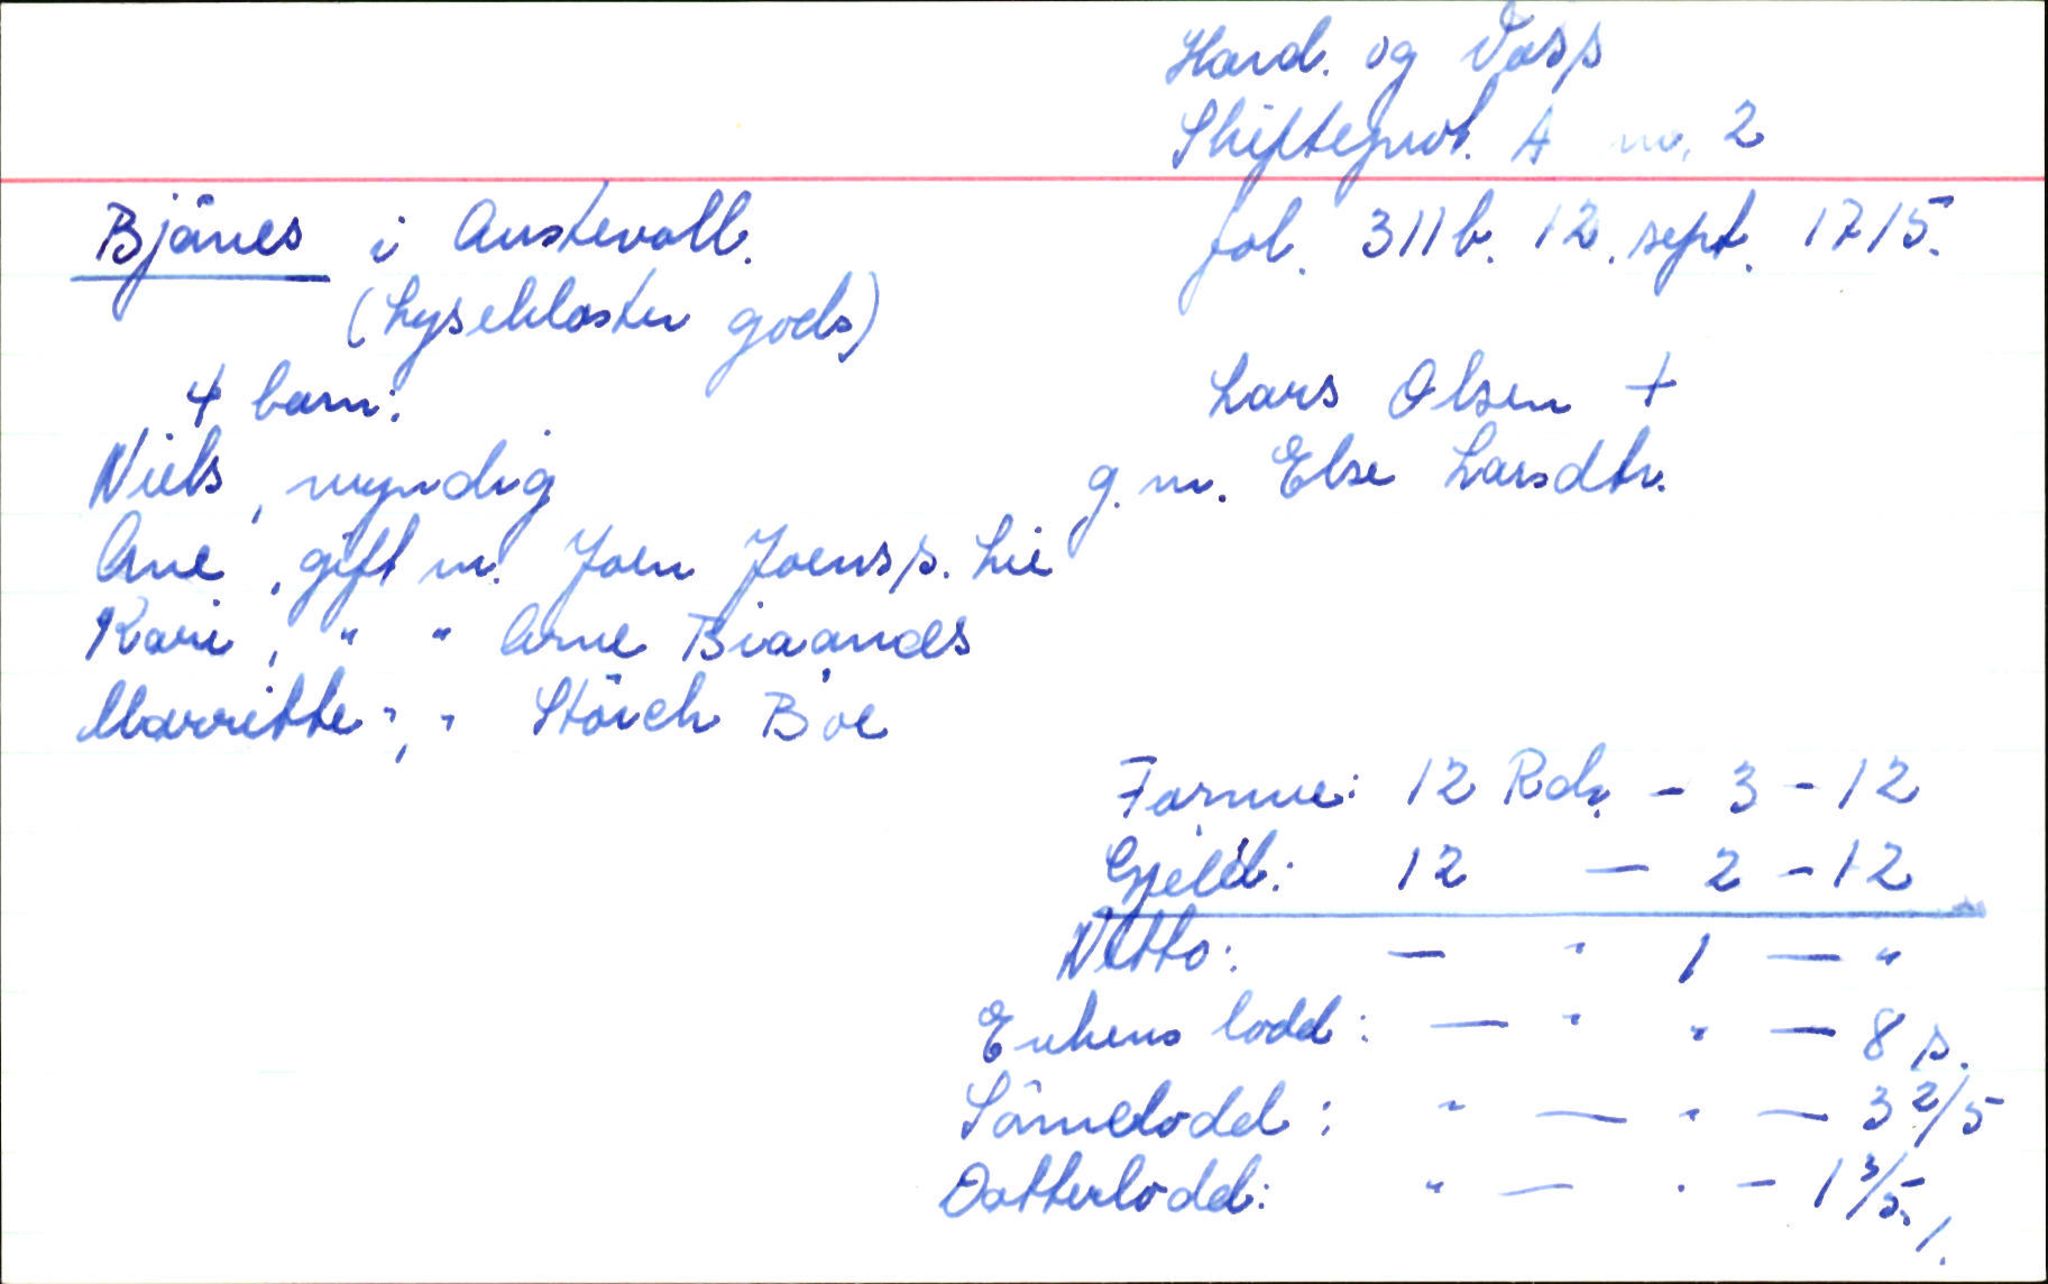 Hard. og Voss
Skifteprot. A nr. 2
fol. 311b. 12. sept. 1715.
Bjånes i Austevoll.
(Lysekloster gods)
Lars Olsen +
g. m. Else Larsdtr.
4 barn:
Niels, myndig
Ane, gift m. Joen Joenss. Lie
Kari, " " Arne Biaanæs
Marritte, " " Störch Boe
Formue: 12 Rdr. - 3 - 12
Gjeld: 12 — 2 - 12
Netto: — " 1 — "
Enkens lodd: — " " — 8 s.
Sönnelodd: " — " — 3 2/5
Datterlodd: " — " - 1 3/5 /.